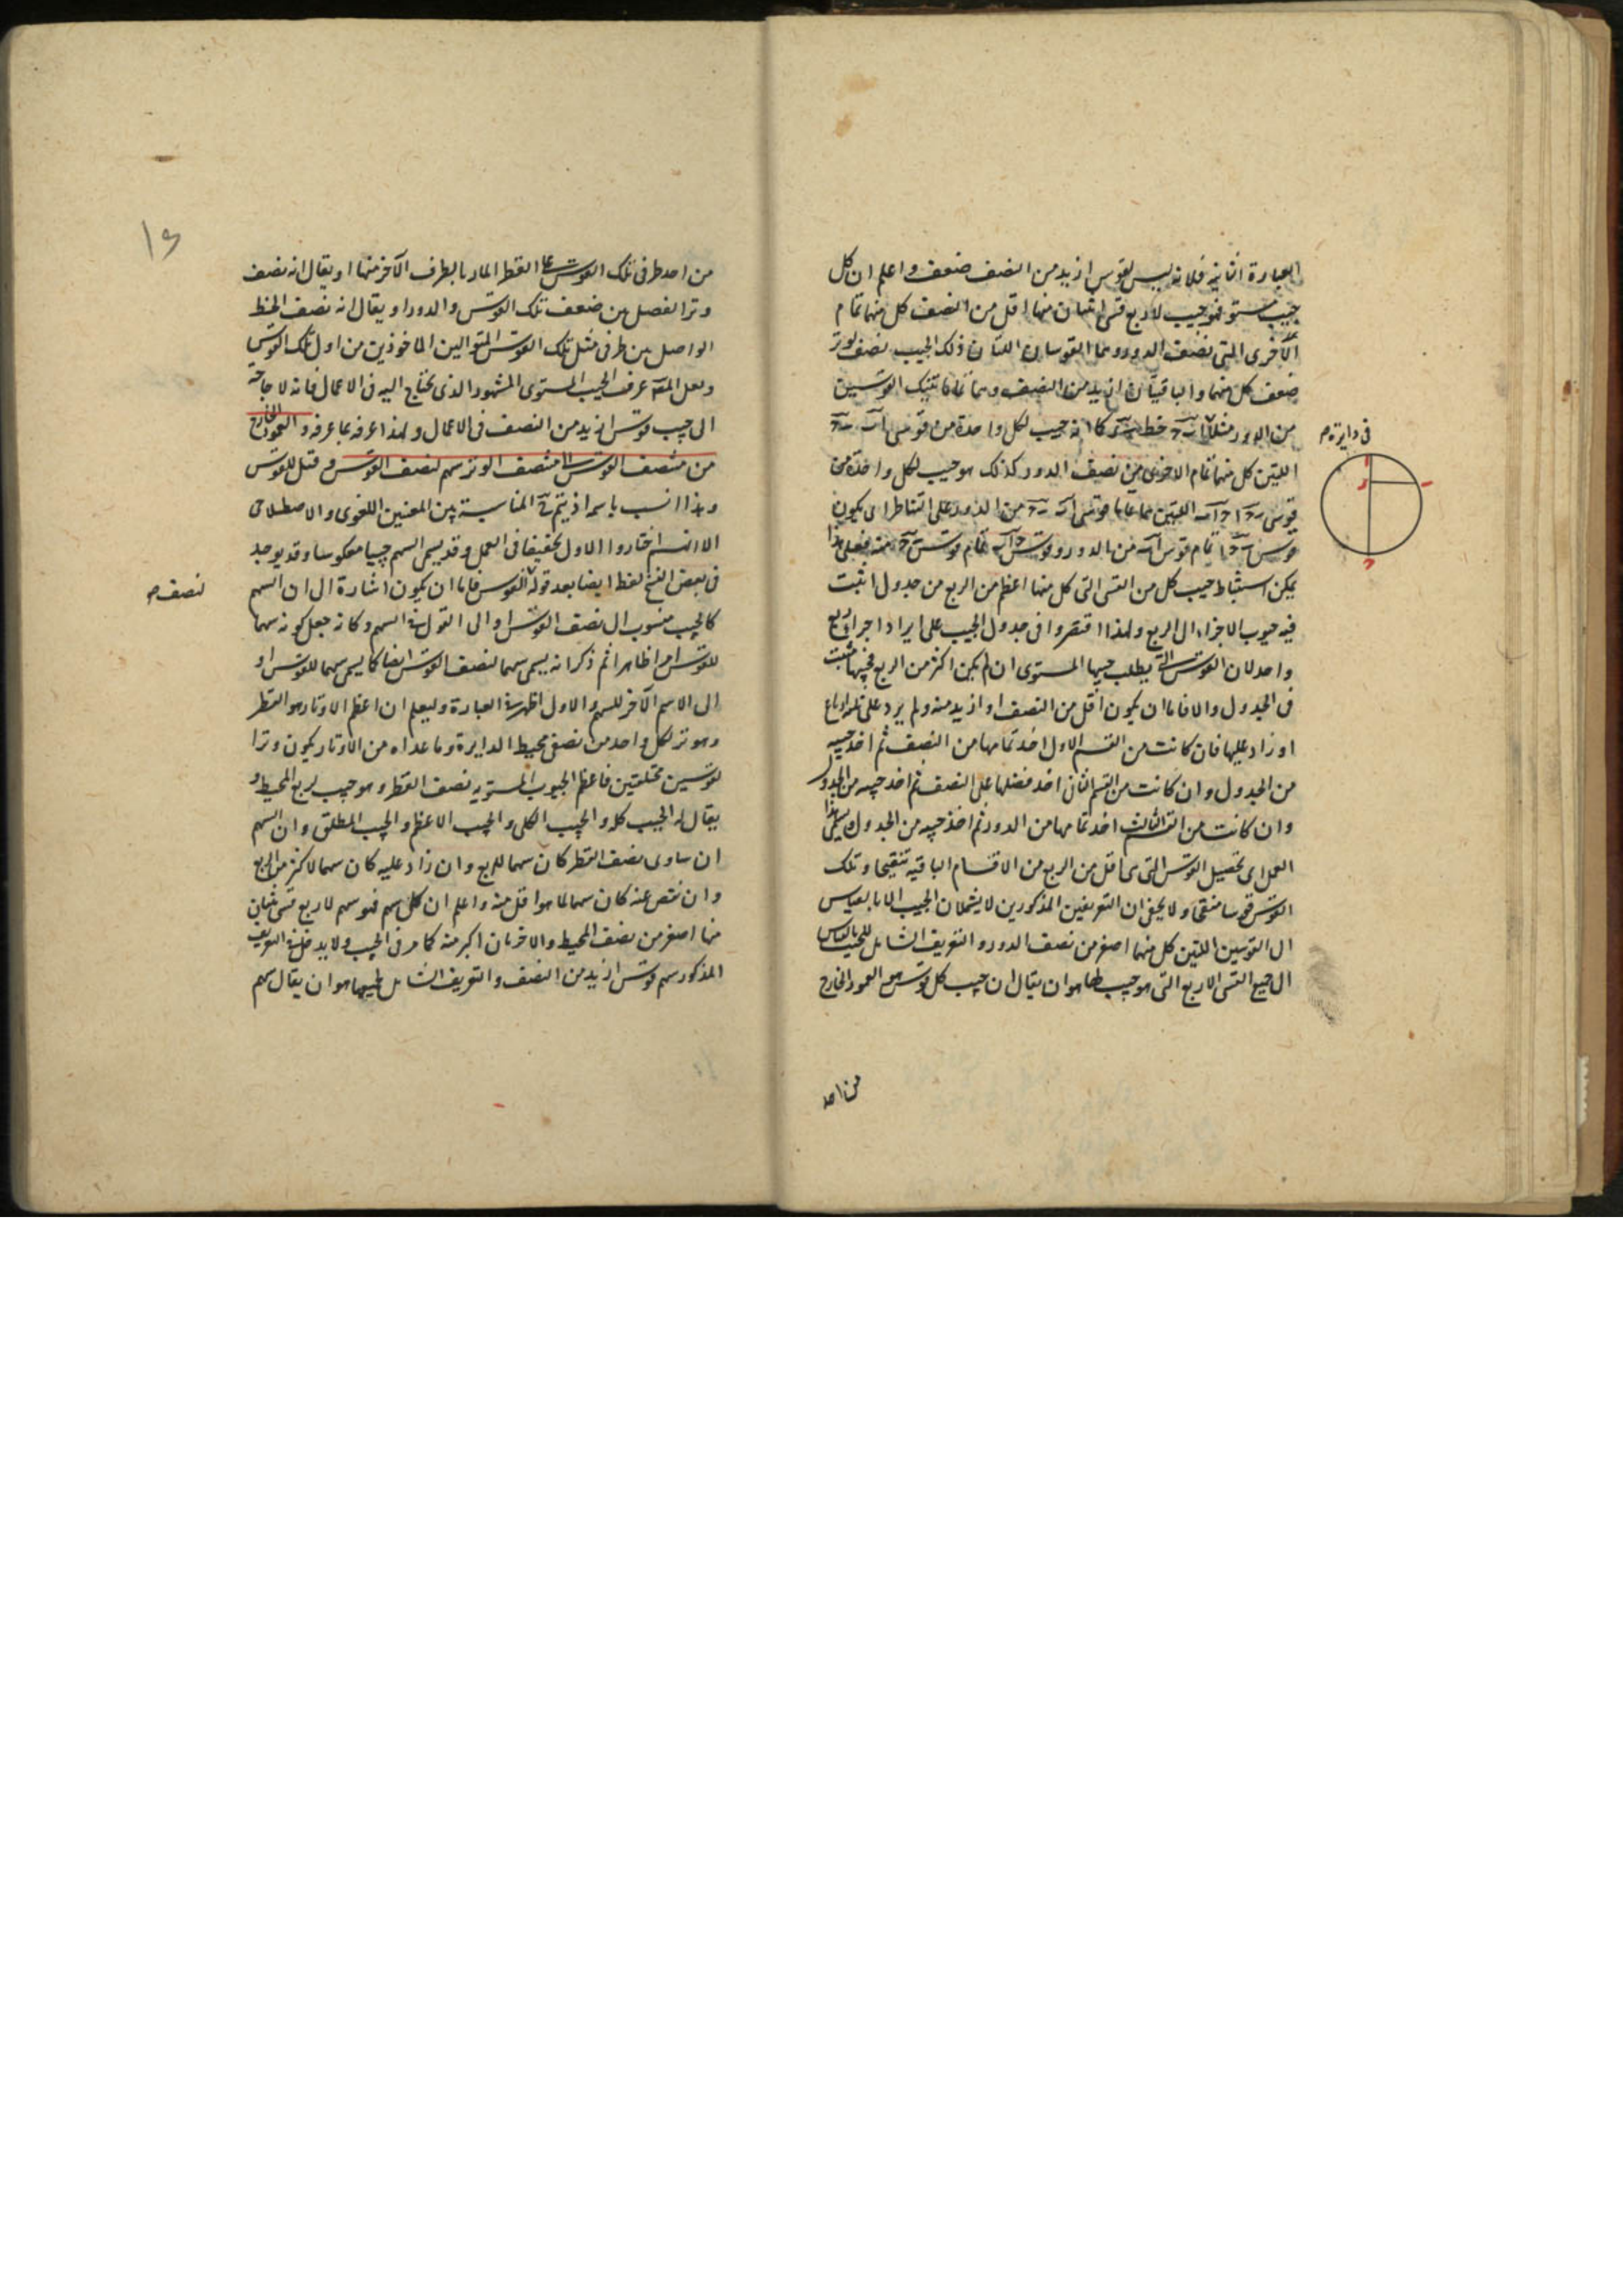 العبارة الثانية فلانه ليس لقوس ازيد من النصف ضعف واعلم ان كل
جيب مستو فهو جيب لاربع قسى اثنتان منها اقل من النصف كل منهما تمام
الاخرى الى نصف الدور وهما القوسان اللتان ذلك الجيب نصف لوتر
ضعف كل منهما والباقيتان ازيد من النصف وهما تماما تينك القوسين
من الدور مثلا خط كما انه جيب لكل واحدة من قوسى
فى دايرة
اللتين كل منهما تمام الاخرى من نصف الدور كذلك هو جيب لكل واحدة من
قوسى اللتين هما تماما قوسى من الدور على التناظر اى يكون
قوس تمام قوس من الدور وقوس تمام قوس منه فعلى هذا
يمكن استنباط جيب كل من القسى التى كل منها اعظم من الربع من جدول اثبت
فيه جيوب الاجزاء الى الربع ولهذا اقتصروا فى جدول الجيب على ايراد اجزاء ربع
واحد لان القوس التى يطلب جيبها المستوى ان لم يكن اكثر من الربع فجيبها مثبت
فى الجدول والا فاما ان يكون اقل من النصف او ازيد منه ولم يزد على ثلثة ارباع
او زاد عليها فان كانت من القسم الاول اخذ تمامها من النصف ثم اخذ جيبه
من الجدول وان كانت من القسم الثانى اخذ فضلها على النصف ثم اخذ جيبه من الجدول
وان كانت من القسم الثالث اخذ تمامها من الدور ثم اخذ جيبه من الجدول ويسمى هذا
العمل اى تحصيل القوس التى هى اقل من الربع من الاقسام الباقية تنقيحا وتلك
القوس قوسا منقحة ولا يخفى ان التعريفين المذكورين لا يشملان الجيب الا بالقياس
الى القوسين اللتين كل منهما اصغر من نصف الدور والتعريف الشامل للجيب بالقياس
الى جميع القسى الاربع التى هو جيب لها هو ان يقال ان جيب كل قوس هو العمود الخارج
من احد
من احد طرفى تلك القوس على القطر المار بالطرف الآخر منها او يقال انه نصف
وتر الفضل بين ضعف تلك القوس والدور او يقال انه نصف الخط
الواصل بين طرفى مثلى تلك القوس المتواليين الماخوذين من اول تلك القوس
ولعل المص عرف الجيب المستوى المشهور الذى يحتاج اليه فى الاعمال فانه لا حاجة
الى جيب قوس ازيد من النصف فى الاعمال ولهذا عرفه بما عرفه والعمود الخارج
من منتصف القوس الى منتصف الوتر سهم لنصف القوس و قيل للقوس
وهذا انسب باسمه اذ يتم ح المناسبة بين المعنيين اللغوى والاصطلاحى
الا انهم اختاروا الاول تخفيفا فى العمل وقد يسمى السهم جيبا معكوسا وقد يوجد
فى بعض النسخ لفظ ايضا بعد قوله القوس فاما ان يكون اشارة الى ان السهم
نصف
كالجيب منسوب الى نصف القوس او الى القول فى السهم وكانه جعل كونه سهما
للقوس امرا ظاهرا ثم ذكر انه يسمى سهما لنصف القوس ايضا كما يسمى سهما للقوس او
الى الاسم الآخر للسهم والاول اظهر فى العبارة وليعلم ان اعظم الاوتار هو القطر
وهو وتر لكل واحد من نصفى محيط الدايرة وما عداه من الاوتار يكون وترا
لقوسين مختلفتين فاعظم الجيوب المستوية نصف القطر وهو جيب لربع المحيط و
يقال له الجيب كله والجيب الكلى والجيب الاعظم والجيب المطلق وان السهم
ان ساوى نصف القطر كان سهما للربع وان زاد عليه كان سهما لاكثر من الربع
وان نقص عنه كان سهما لما هو اقل منه واعلم ان كل سهم فهو سهم لاربع قسى ثنتان
منها اصغر من نصف المحيط والاخريان اكبر منه كما مر فى الجيب ولا يدخل فى التعريف
المذكور سهم قوس ازيد من النصف والتعريف الشامل لجميعها هو ان يقال سهم